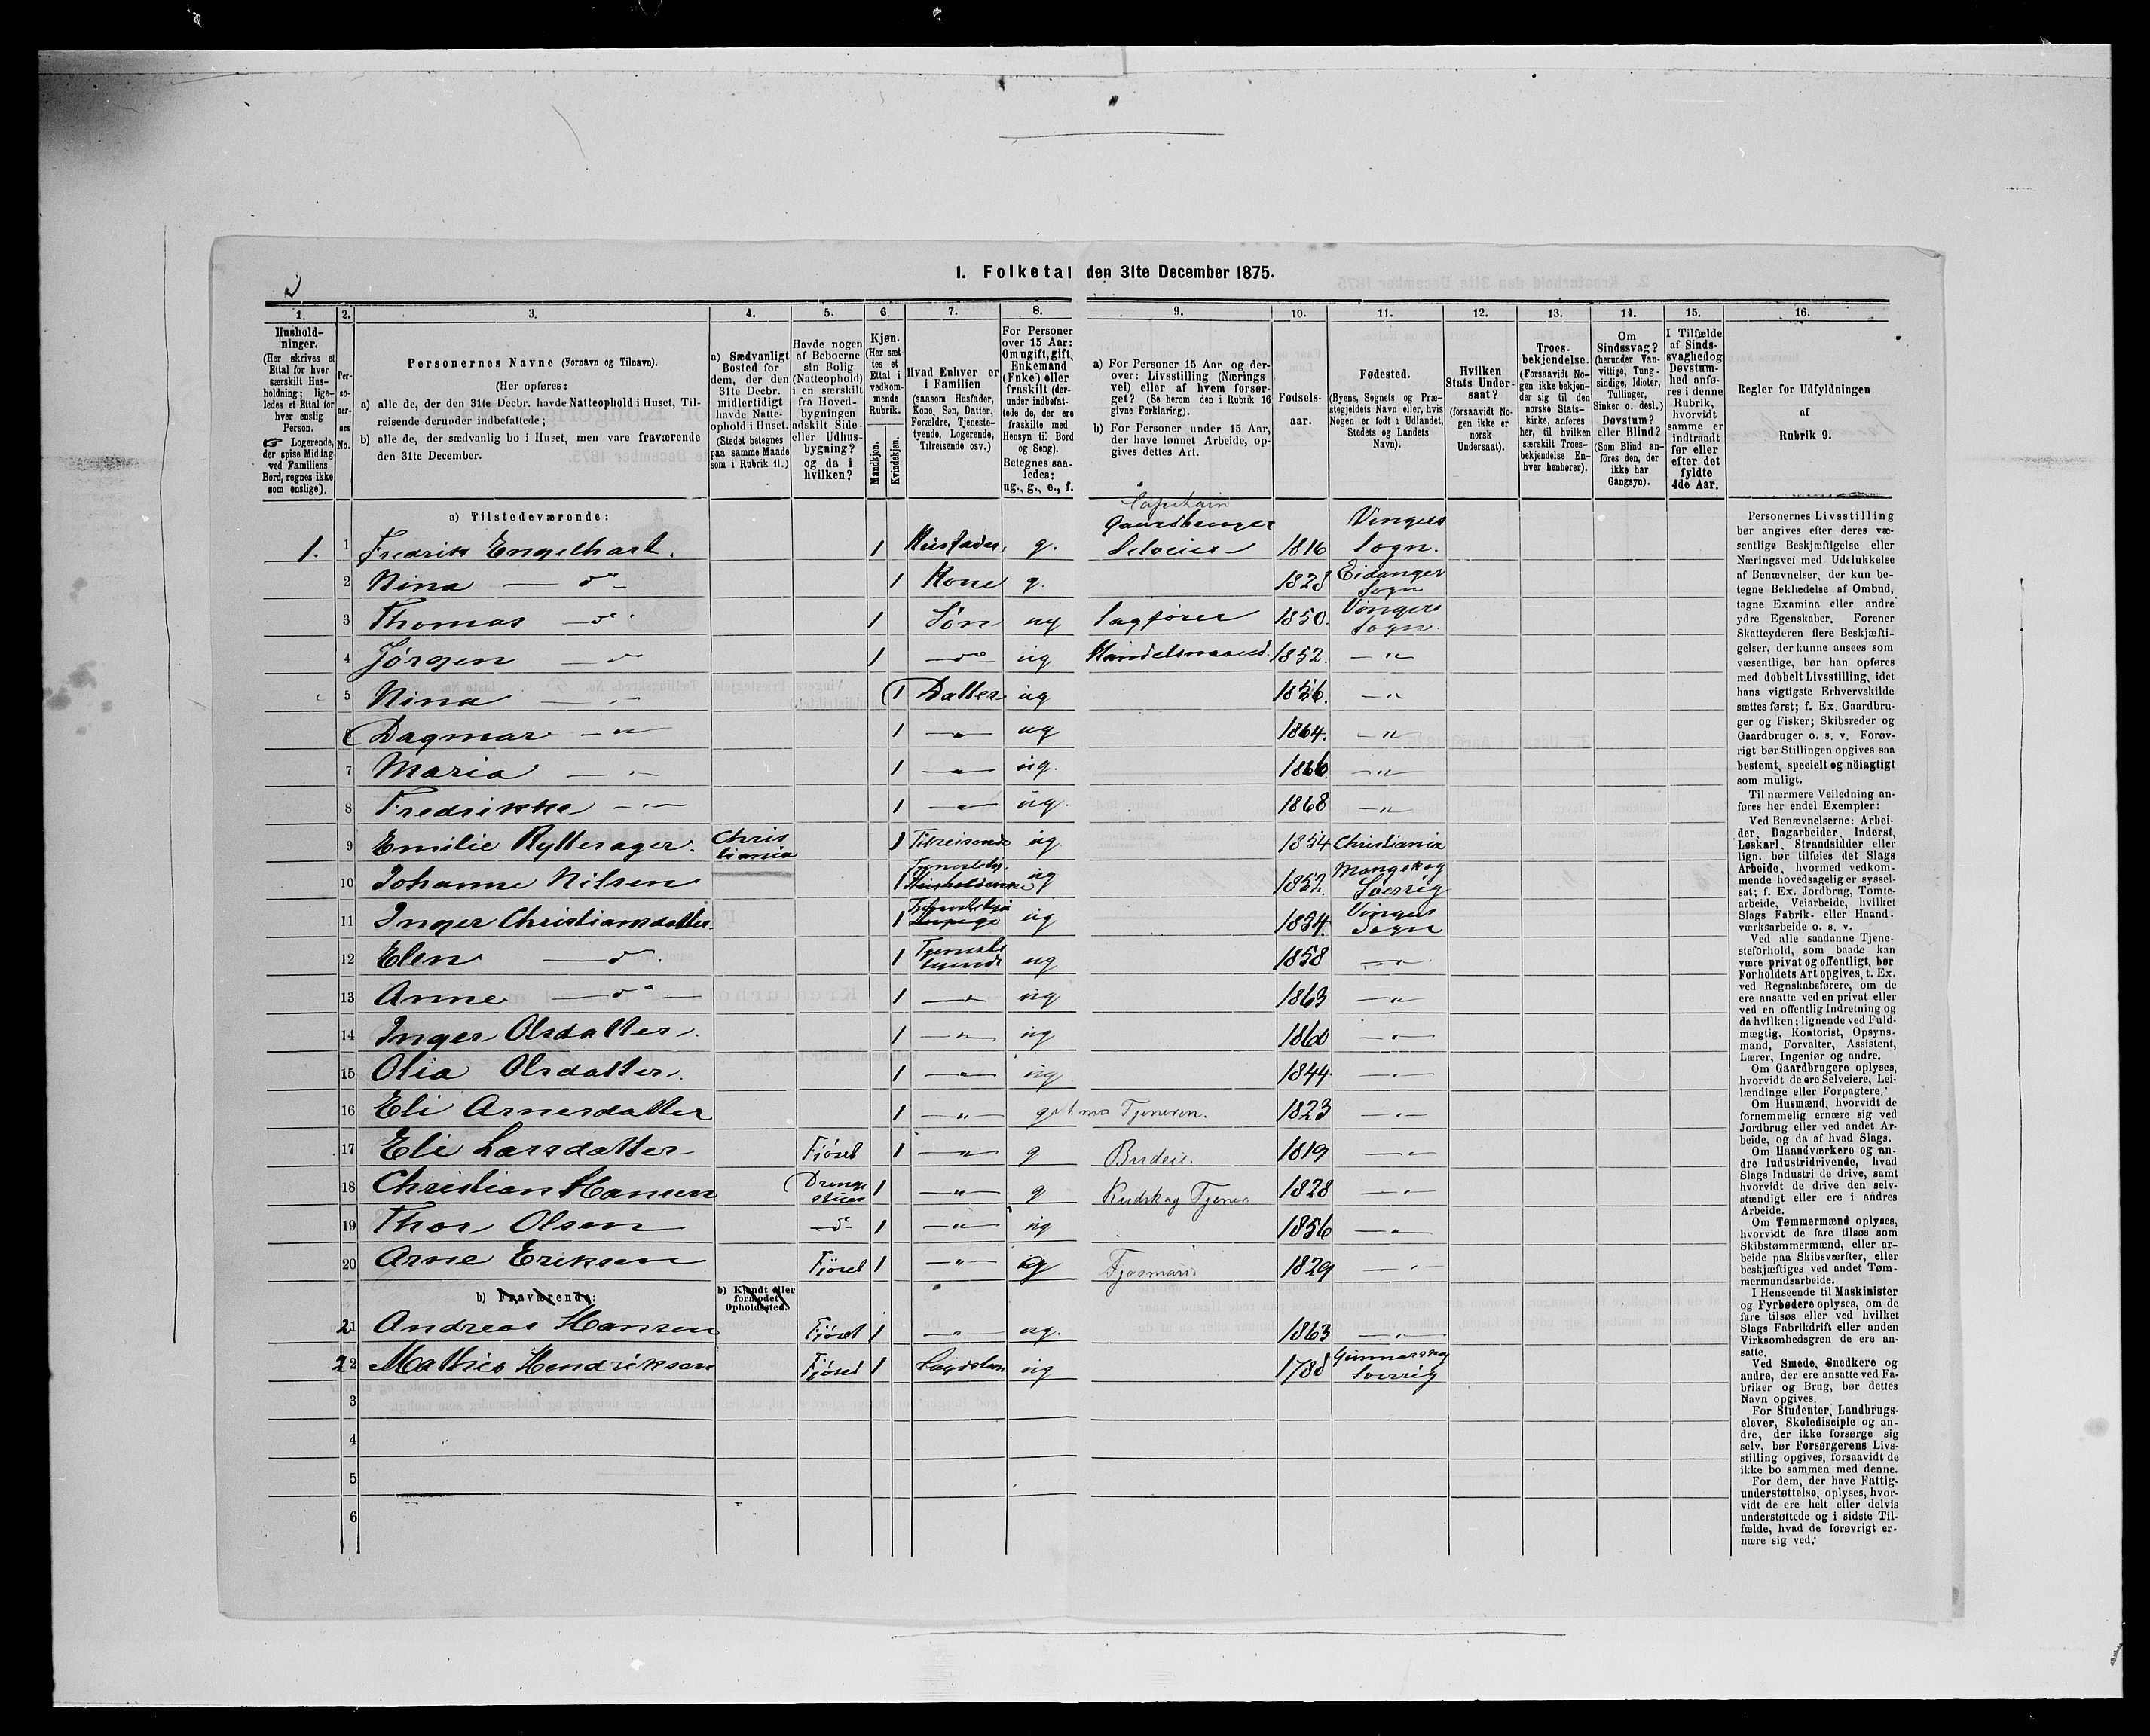 2
1. Folketal den 31te December 1875.
1. 2. 3. 4. 5. 6. 7. 8. 9. 10. 11. 12. 13. 14. 15. 16.
Hushold-
ninger.
(Her skrives et
Ettal for hver
særskilt Hus-
holdning; lige-
ledes et Ettal for
hver enslig
Person.
☞ Logerende,
der spise Middag
ved Familiens
Bord, regnes ikke
som enslige).
Per-
so-
ner-
nes
No.
Personernes Navne (Fornavn og Tilnavn).
(Her opføres:
a) alle de, der den 31te Decbr. havde Natteophold i Huset, Til-
reisende derunder indbefattede;
b) alle de, der sædvanlig bo i Huset, men vare fraværende
den 31te December.
a) Sædvanligt
Bosted for
dem, der den
31te Decbr.
midlertidigt
havde Natte-
ophold i Huset.
(Stedet betegnes
paa samme Maade
som i Rubrik 11.)
Havde nogen
af Beboerne
sin Bolig
(Natteophold)
i en særskilt
fra Hoved-
bygningen
adskilt Side-
eller Udhus-
bygning?
og da i
hvilken?
Kjøn.
(Her sæt-
tes et
Ettal i
vedkom-
mende
Rubrik.
Mandkjøn.
Kvindekjøn.
Hvad Enhver er
i Familien
(saasom Husfader,
Kone, Søn, Datter,
Forældre, Tjeneste-
tyende, Logerende,
Tilreisende osv.)
For Personer
over 15 Aar:
Om ugift, gift,
Enkemand
(Enke) eller
fraskilt (der-
under indbefat-
tede de, der ere
fraskilte med
Hensyn til Bord
og Seng).
Betegnes saa-
ledes:
ug., g., e., f.
a) For Personer 15 Aar og der-
over: Livsstilling (Nærings
vei) eller af hvem forsør-
get? (Se herom den i Rubrik 16
givne Forklaring).
b) For Personer under 15 Aar,
der have lønnet Arbeide, op-
gives dettes Art.
Fødsels-
aar.
Fødested.
(Byens, Sognets og Præ-
stegjeldets Navn eller, hvis
Nogen er født i Udlandet,
Stedets og Landets
Navn).
Hvilken
Stats Under-
saat?
(forsaavidt No-
gen ikke er
norsk
Undersaat).
Troes-
bekjendelse.
(Forsaavidt No-
gen ikke bekjen-
der sig til den
norske Stats-
kirke, anføres
her, til hvilken
særskilt Troes-
bekjendelse En-
hver henhører).
Om
Sindssvag?
(herunder Van-
vittige, Tung-
sindige, Idioter,
Tullinger,
Sinker o. desl.)
Døvstum?
eller Blind?
(Som Blind an-
føres den, der
ikke har
Gangsyn).
I Tilfælde
af Sinds-
svaghed og
Døvstum-
hed anfø-
res i denne
Rubrik,
hvorvidt
samme er
indtraadt
før eller
efter det
fyldte
4de Aar.
Regler for Udfyldningen
af
Rubrik 9.
a) Tilstedeværende:
Capitain
Gaardbruger Vingers
1. 1 Fredrik Engelhart. 1 Husfader g. Selveier 1816 Sogn.
2 Nina — do - 1 Kone g. 1828 Eidanger Sogn
3 Thomas — do 1 Søn ug Sagfører 1850. Vingers Sogn.
4 Jørgen — do 1 — do ug Handelsmand. 1852. — „ —
5 Nina — „ — 1 Datter ug 1856. — „ —
6 Dagmar — „ — 1 — „ — ug 1864. — „ —
7 Maria — „ — 1 — „ — ug. 1866. — „ —
8 Fredrikke — „ — 1 — „ — ug. 1868 — „ —
9 Emilie Ryttersager. Chris tiania 1 Tilreisende ug 1854 Christiania
10 Johanne Nilsen 1 ug 1852. Mangskog Sverrig
11 Inger Christiansdatter. 1 ug 1854. Vingers Sogn
12 Elen — do. 1 Tjeneste tyende ug 1858 — „ —
13 Anne — do — 1 — „ — ug 1863 — „ —
14 Inger Olsdatter. 1 — „ — ug 1860 — „ —
15 Olia Olsdatter. 1 — „ — ug 1844 — „ —
16 Eli Arnesdatter 1 — „ — g Tjeneren. 1823 — „ —
17 Eli Larsdatter Fjöset 1 — „ — g Budeie. 1819 — „ —
18 Christian Hansen Drenge stuen 1 — „ — g Kudsk og Tjener 1828 — „ —
19 Thor Olsen — do - 1 — „ — ug 1856 — „ —
20 Arne Eriksen Fjöset 1 — „ — g Fjøsmand 1829 — „ —
b) Fraværende:
b) Kjendt eller
formodet
Opholdssted.
21 Andreas Hansen Fjöset 1 — „ — ug. 1863 — „ —
22 Mathies Hendriksen Fjöset 1 Lægdslem ug 1788 Gunnarskog Sverrig
3
4
5
6
Personernes Livsstilling
bør angives efter deres væ-
sentlige Beskjæftigelse eller
Næringsvei med Udelukkelse
af Benævnelser, der kun be-
tegne Beklædelse af Ombud,
tagne Examina eller andre
ydre Egenskaber. Forener
Skatteyderen flere Beskjæfti-
gelser, der kunne ansees som
væsentlige, bør han opføres
med dobbelt Livsstilling, idet
hans vigtigste Erhvervskilde
sættes først; f. Ex. Gaardbru-
ger og Fisker; Skibsreder og
Gaardbruger o. s. v. Forøv-
rigt bør Stillingen opgives saa
bestemt, specielt og nöiagtigt
som muligt.
Til nærmere Veiledning an-
føres her endel Exempler:
Ved Benævnelserne: Arbei-
der, Dagarbeider, Inderst,
Løskarl, Strandsidder eller
lign. bør tilføies det Slags
Arbeide, hvormed vedkom-
mende hovedsagelig er syssel-
sat; f. Ex. Jordbrug, Tomte-
arbeide, Veiarbeide, hvilket
Slags Fabrik- eller Haand-
værksarbeide o. s. v.
Ved alle saadanne Tjene-
steforhold, som baade kan
være privat og offentligt, bør
Forholdets Art opgives, t. Ex.
ved Regnskabsførere, om de
ere ansatte ved en privat eller
ved en offentlig Indretning og
da hvilken; lignende ved Fuld-
mægtig, Kontorist, Opsyns-
mand, Forvalter, Assistent,
Lærer, Ingeniør og andre.
Om Gaardbrugere oplyses,
hvorvidt de ere Selveiere, Lei-
lændinge eller Forpagtere.
Om Husmænd, hvorvidt de
fornemmelig ernære sig ved
Jordbrug eller ved andet Ar-
beide, og da af hvad Slags.
Om Haandværkere og an-
dre Industridrivende, hvad
Slags Industri de drive, samt
hvorvidt de drive den selv-
stændigt eller ere i andres
Arbeide.
Om Tømmermænd oplyses,
hvorvidt de fare tilsøs som
Skibstømmermænd, eller ar-
beide paa Skibsværfter, eller
beskjæftiges ved andet Tøm-
mermandsarbeide.
I Henseende til Maskinister
og Fyrbødere oplyses, om de
fare tilsøs eller ved hvilket
Slags Fabrikdrift eller anden
Virksomhedsgren de ere an-
satte.
Ved Smede, Snedkere og
andre, der ere ansatte ved Fa-
briker og Brug, bør dettes
Navn opgives.
For Studenter, Landbrugs-
elever, Skoledisciple og an-
dre, der ikke forsørge sig
selv, bør Forsørgerens Livs-
stilling opgives, forsaavidt de
ikke bo sammen med denne.
For dem, der have Fattig-
understøttelse, oplyses, hvor-
vidt de ere helt eller delvis
understøttede og i sidste Til-
fælde, hvad de forøvrigt er-
nære sig ved.